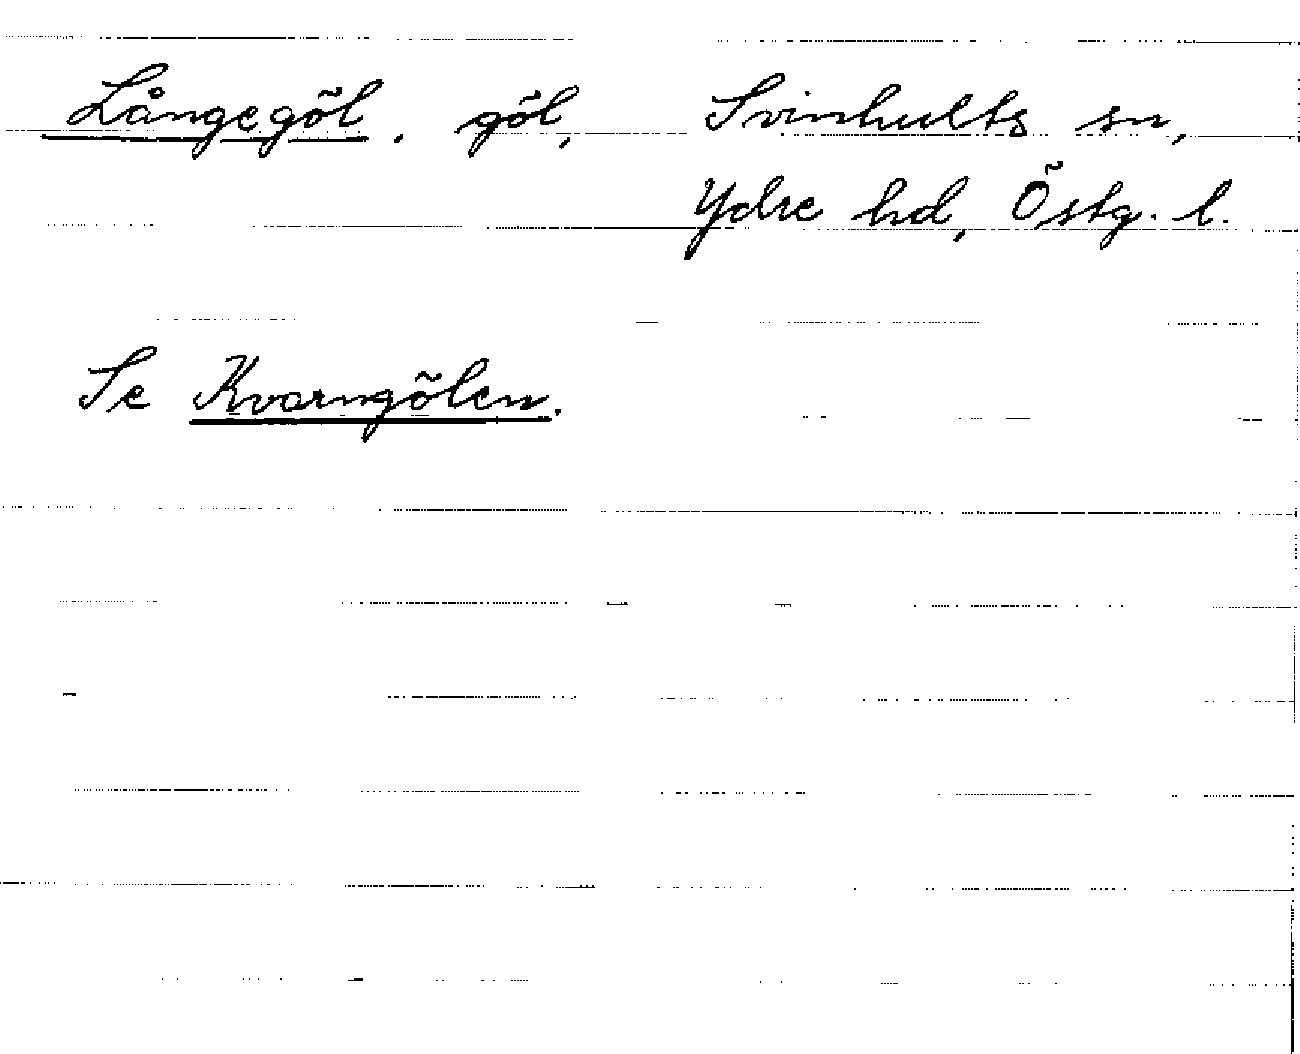 Långegöl, göl, Svinhults sn,
Ydre hd, Östg. l.
Se Kvarngölen.